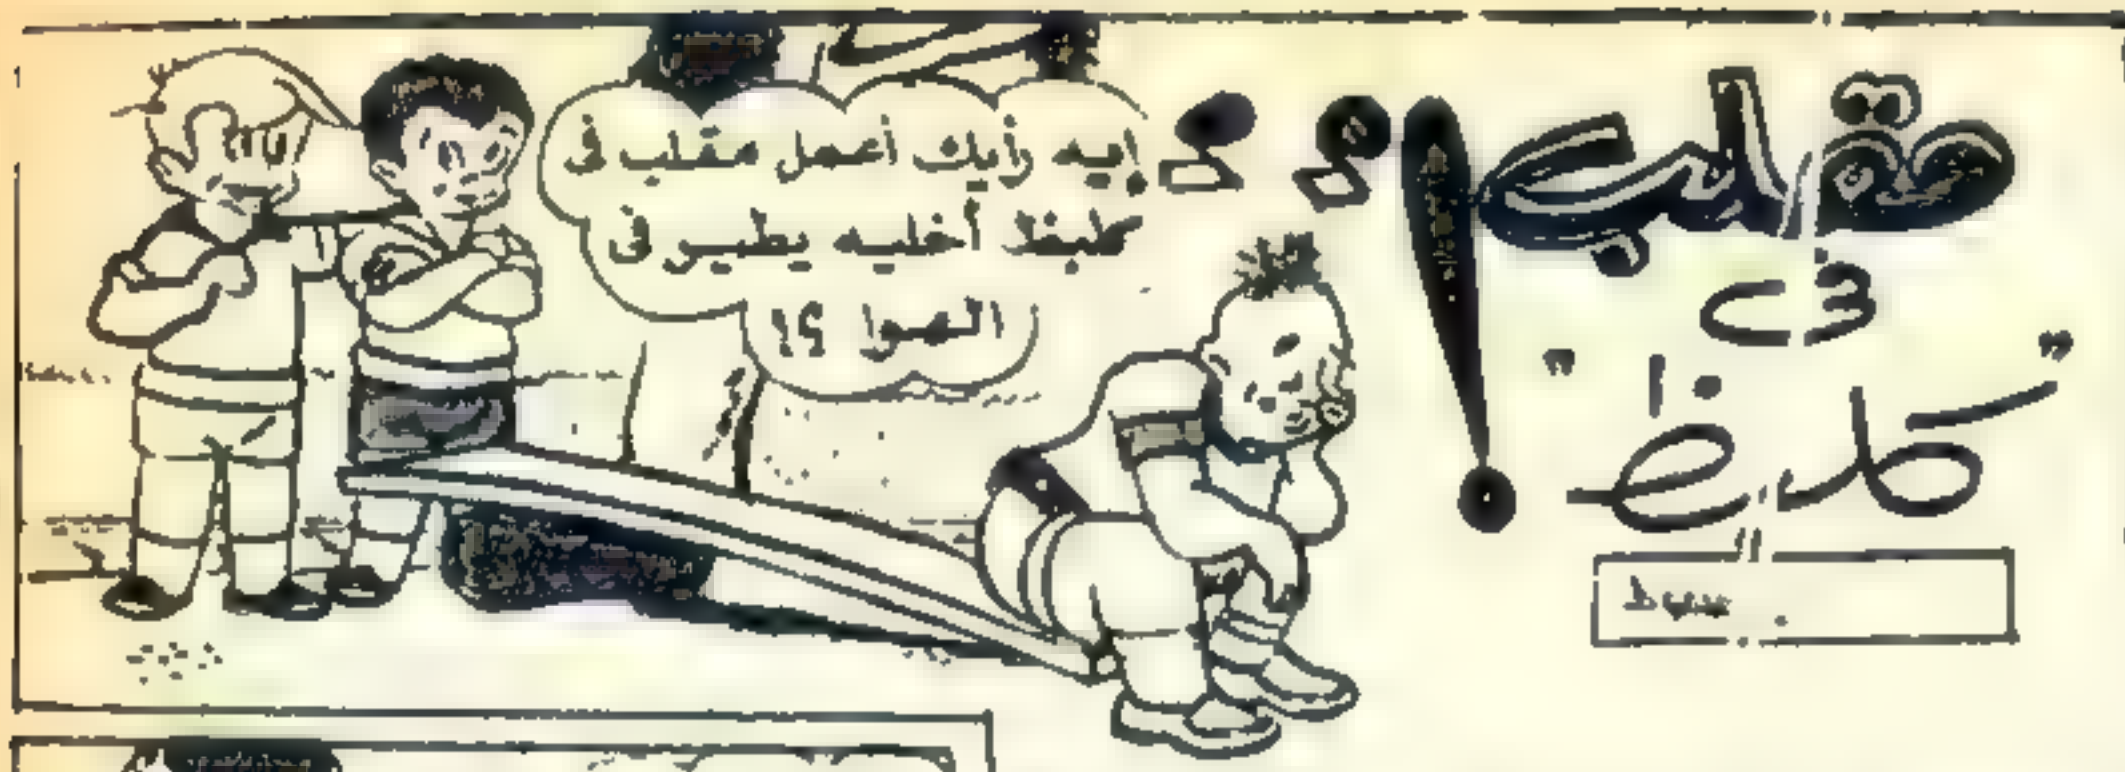 مقلب
فى
"كلبظ"
إيه رأيك أعمل مقلب فى
كلبظ أخليه يطير فى
الهوا ؟!